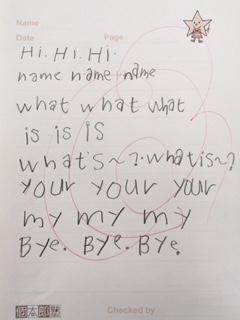 Name
Date Page
Hi. Hi. Hi.
name name name
what what what
is is is
what's~?. what is~?
your your your
my my my
Bye. Bye. Bye.
Checked by